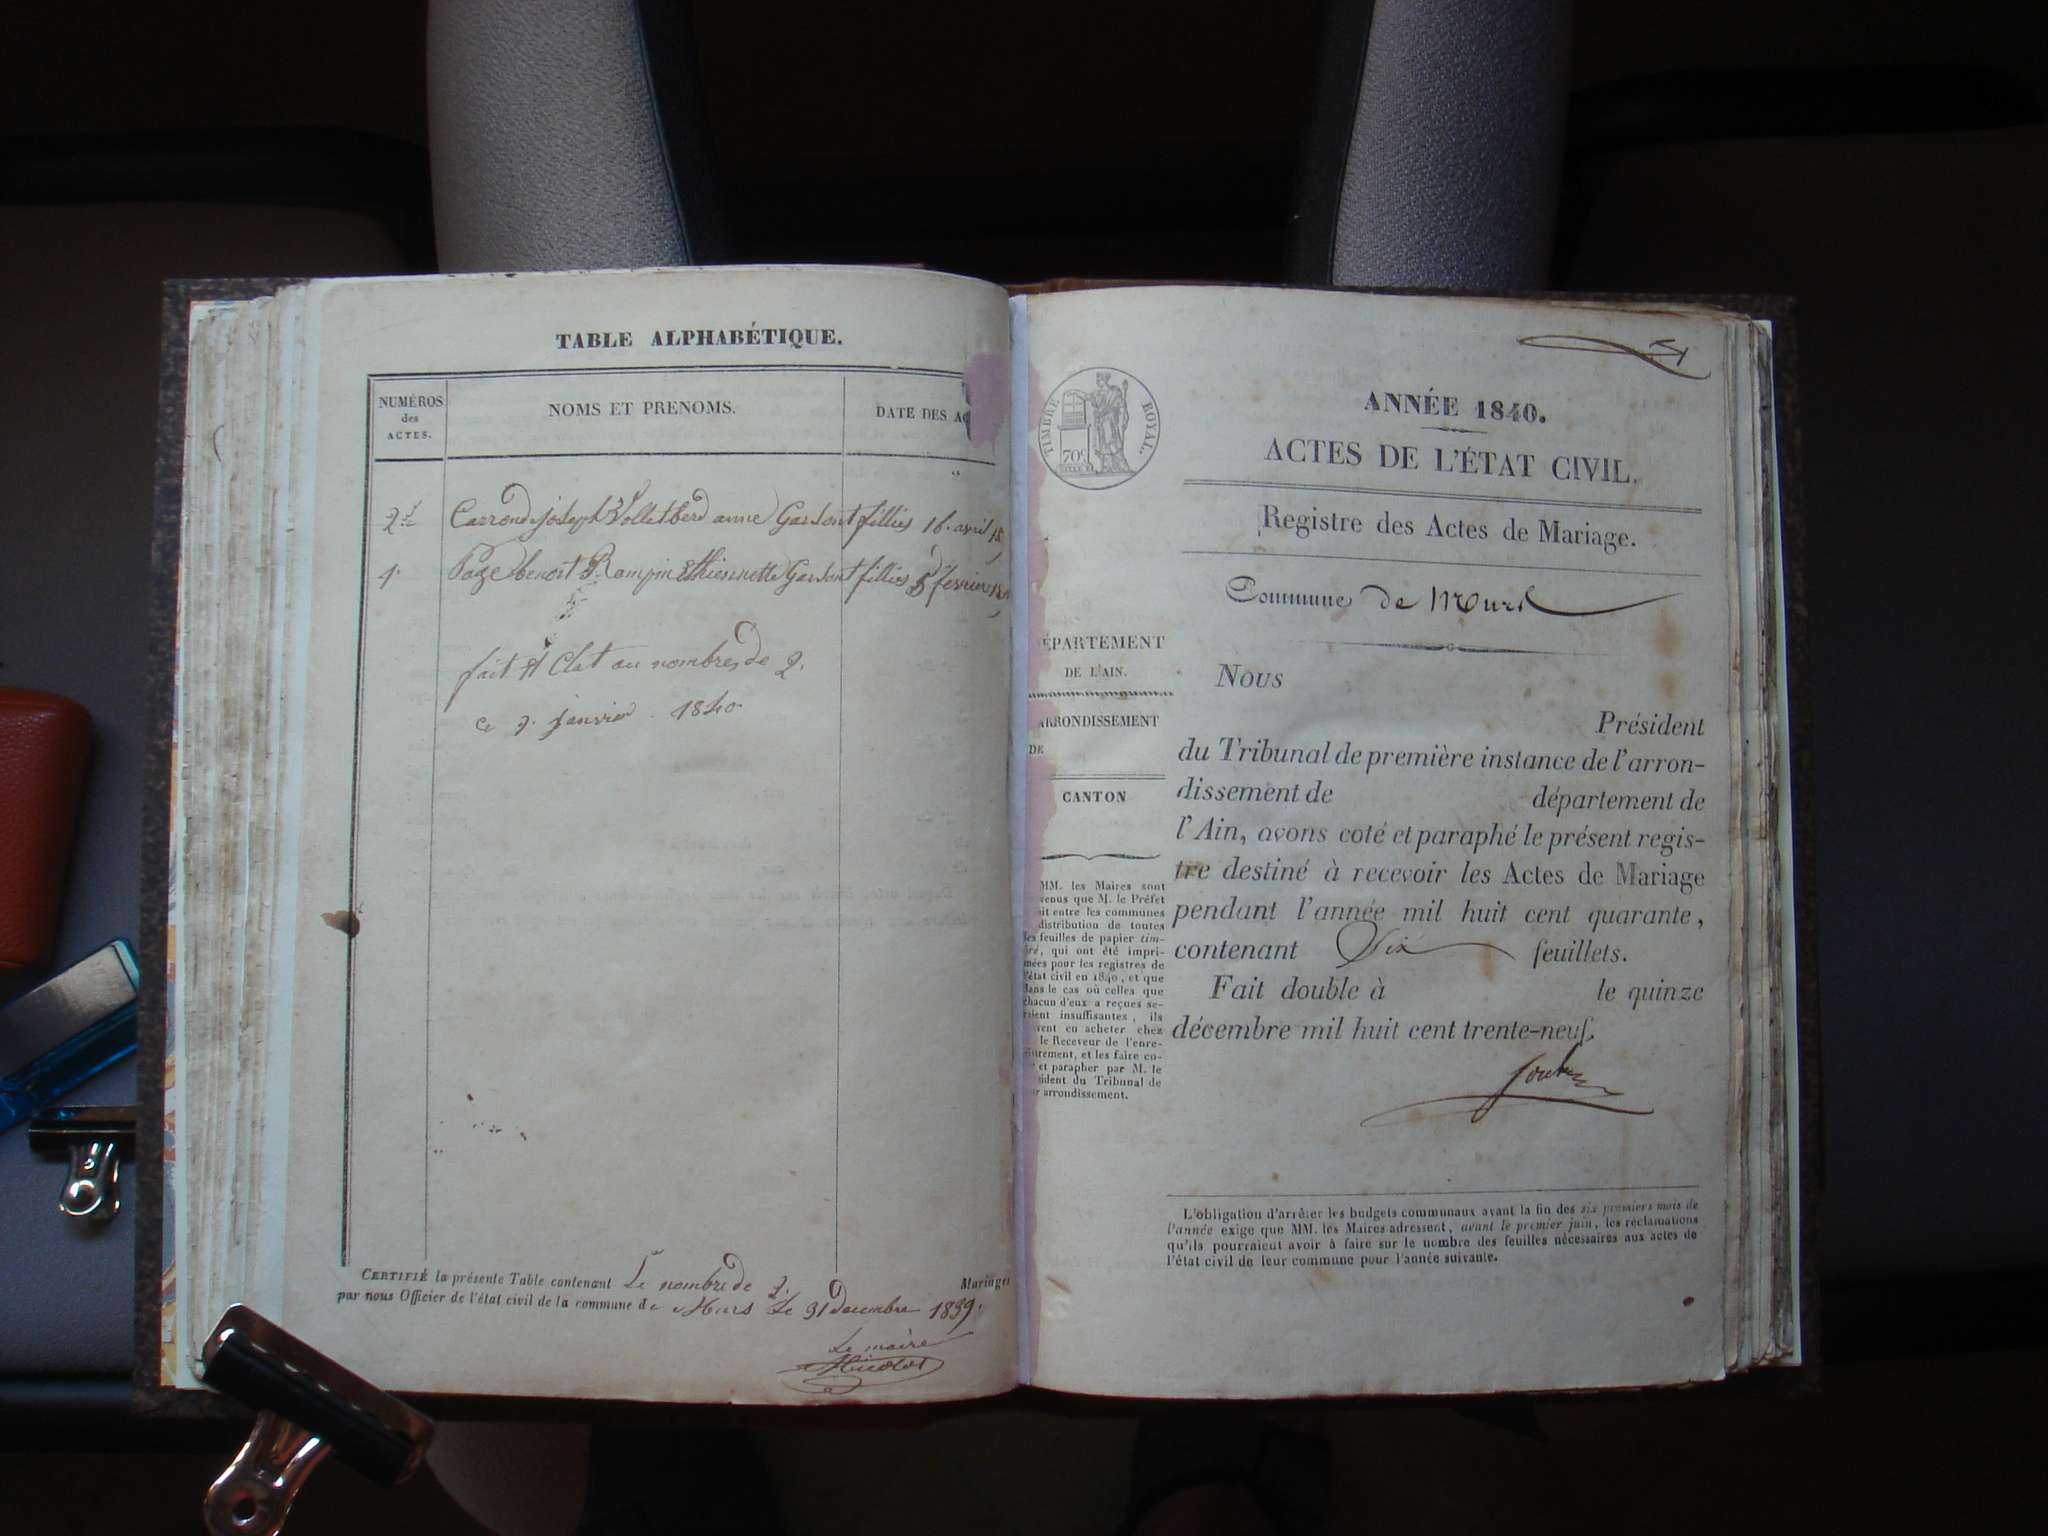 TABLE ALPHABÉTIQUE.
NUMÉROS des ACTES.
NOMS ET PRENOMS.
DATE DES AC
2
Carrond joseph Volletberd anne Garsont fillies 16. avril 18
1. Page benoit Rampin Ethiennette Garsont fillies 5 fevrier
fait A Clat au nombres de 2.
ce janvier 1840
CERTIFIÉ la présente Table contenant Le nombre de 2. Mariages
par nous Officier de l'état civil de la commune de Murs Le 31 Decembre 1839.
Le maire
ANNÉE 1840.
ACTES DE L'ÉTAT CIVIL.
TIMBRE ROYAL.
70c
Registre des Actes de Mariage.
Commune de Murs
ÉPARTEMENT
DE L'AIN.
ARRONDISSEMENT
DE
CANTON
MM. les Maires sont
venus que M. le Préfet
it entre les communes
distribution de toutes
les feuilles de papier tim-
bré, qui ont été impri-
mées pour les registres de
l'état civil en 1840, et que
dans le cas où celles que
chacun d'eux a reçues se-
raient insuffisantes, ils
vent en acheter chez
le Receveur de l'enre-
istrement, et les faire co-
et parapher par M. le
sident du Tribunal de
r arrondissement.
Nous
Président
du Tribunal de première instance de l'arron-
dissement de département de
l'Ain, avons coté et paraphé le présent regis-
tre destiné à recevoir les Actes de Mariage
pendant l'année mil huit cent quarante,
contenant Six feuillets.
Fait double à le quinze
décembre mil huit cent trente-neuf.
L'obligation d'arrêter les budgets communaux avant la fin des six premiers mois de
l'année exige que MM. les Maires adressent, avant le premier juin, les réclamations
qu'ils pourraient avoir à faire sur le nombre des feuilles nécessaires aux actes de
l'état civil de leur commune pour l'année suivante.